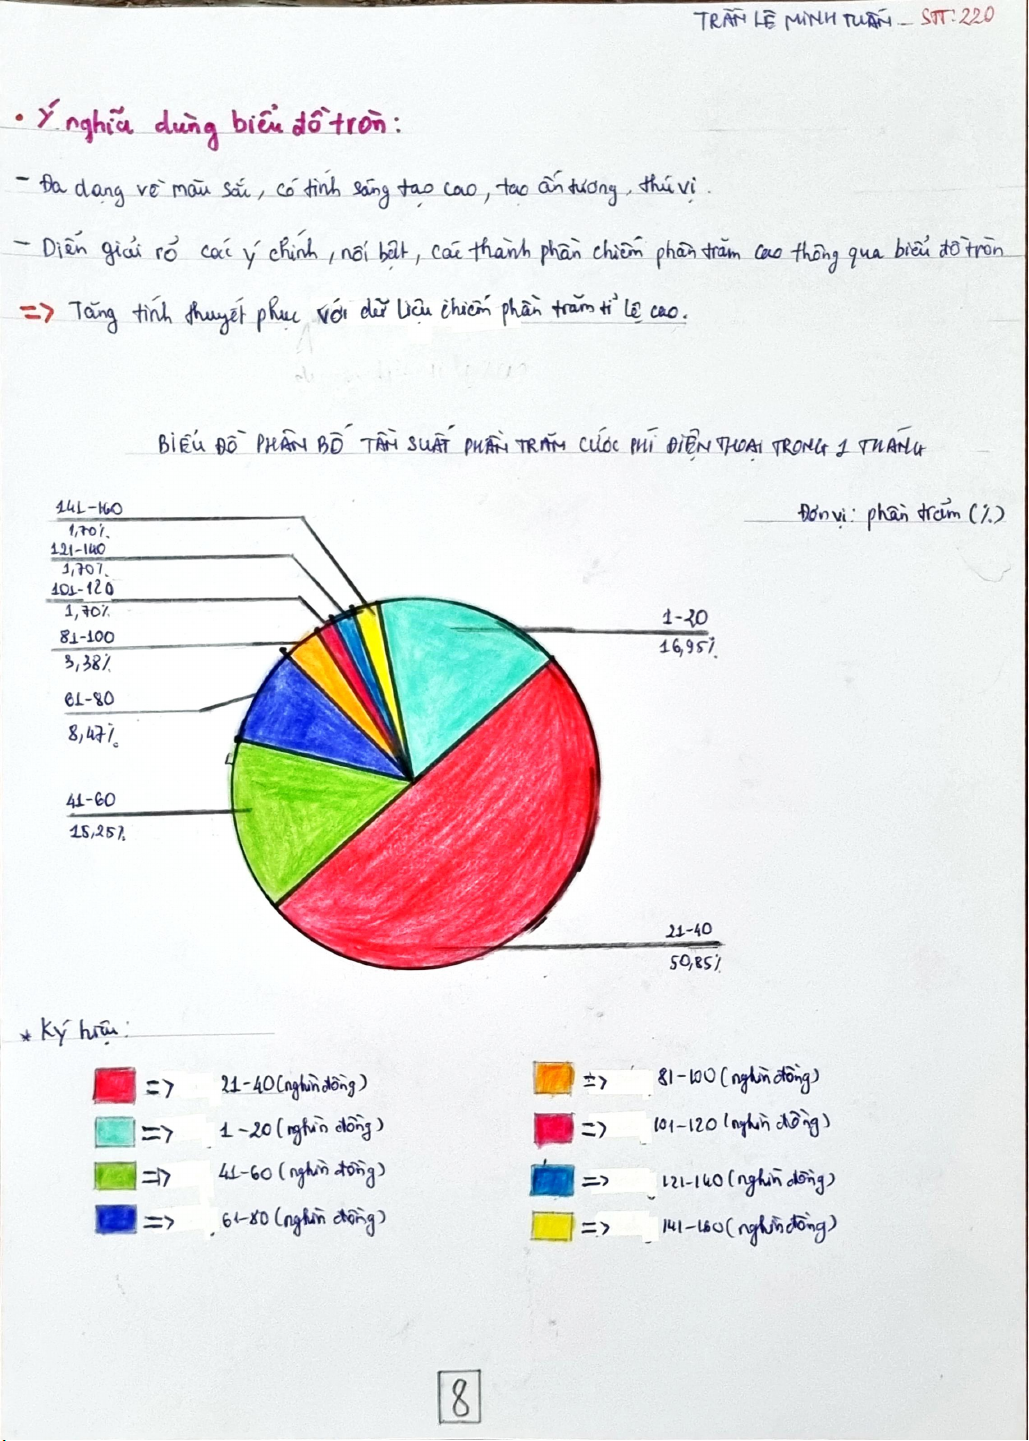 TRẦN LÊ MINH TUẤN - STT: 220
• Ý nghĩa dùng biểu đồ tròn:
- Đa dạng về màu sắc, có tính sáng tạo cao, tạo ấn tượng, thú vị.
- Diễn giải rõ các ý chính, nổi bật, các thành phần chiếm phần trăm cao thông qua biểu đồ tròn
=> Tăng tính thuyết phục với dữ liệu chiếm phần trăm tỉ lệ cao.
BIỂU ĐỒ PHÂN BỐ TẦN SUẤT PHẦN TRĂM CƯỚC PHÍ ĐIỆN THOẠI TRONG 1 THÁNG
Đơn vị: phần trăm (%)
141-160
1,70%
121-140
1,70%
101-120
1,70%
81-100
3,38%
61-80
8,47%
41-60
15,25%
1-20
16,95%
21-40
50,85%
* Ký hiệu:
=> 21-40 (nghìn đồng)
=> 1-20 (nghìn đồng)
=> 41-60 (nghìn đồng)
=> 61-80 (nghìn đồng)
=> 81-100 (nghìn đồng)
=> 101-120 (nghìn đồng)
=> 121-140 (nghìn đồng)
=> 141-160 (nghìn đồng)
8